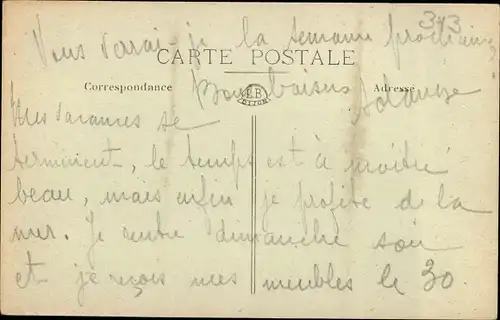 343
Vous verrai-je la semaine prochaine ?
CARTE POSTALE
Bons baisers
Correspondance
Adresse
Mes vacances se
terminent, le temps est à moitié
beau, mais enfin je profite de la
mer. Je rentre dimanche soir
et je reçois mes meubles le 30.